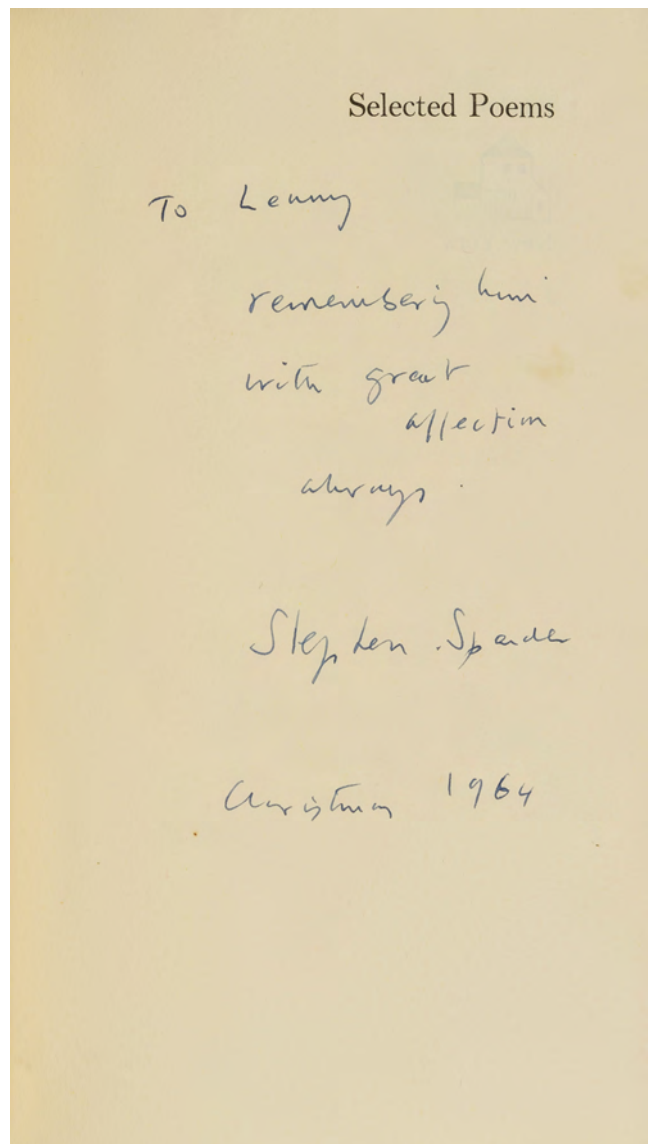 Selected Poems
To Lenny
remembering him
with great
affection
always.
Stephen Spender
Christmas 1964